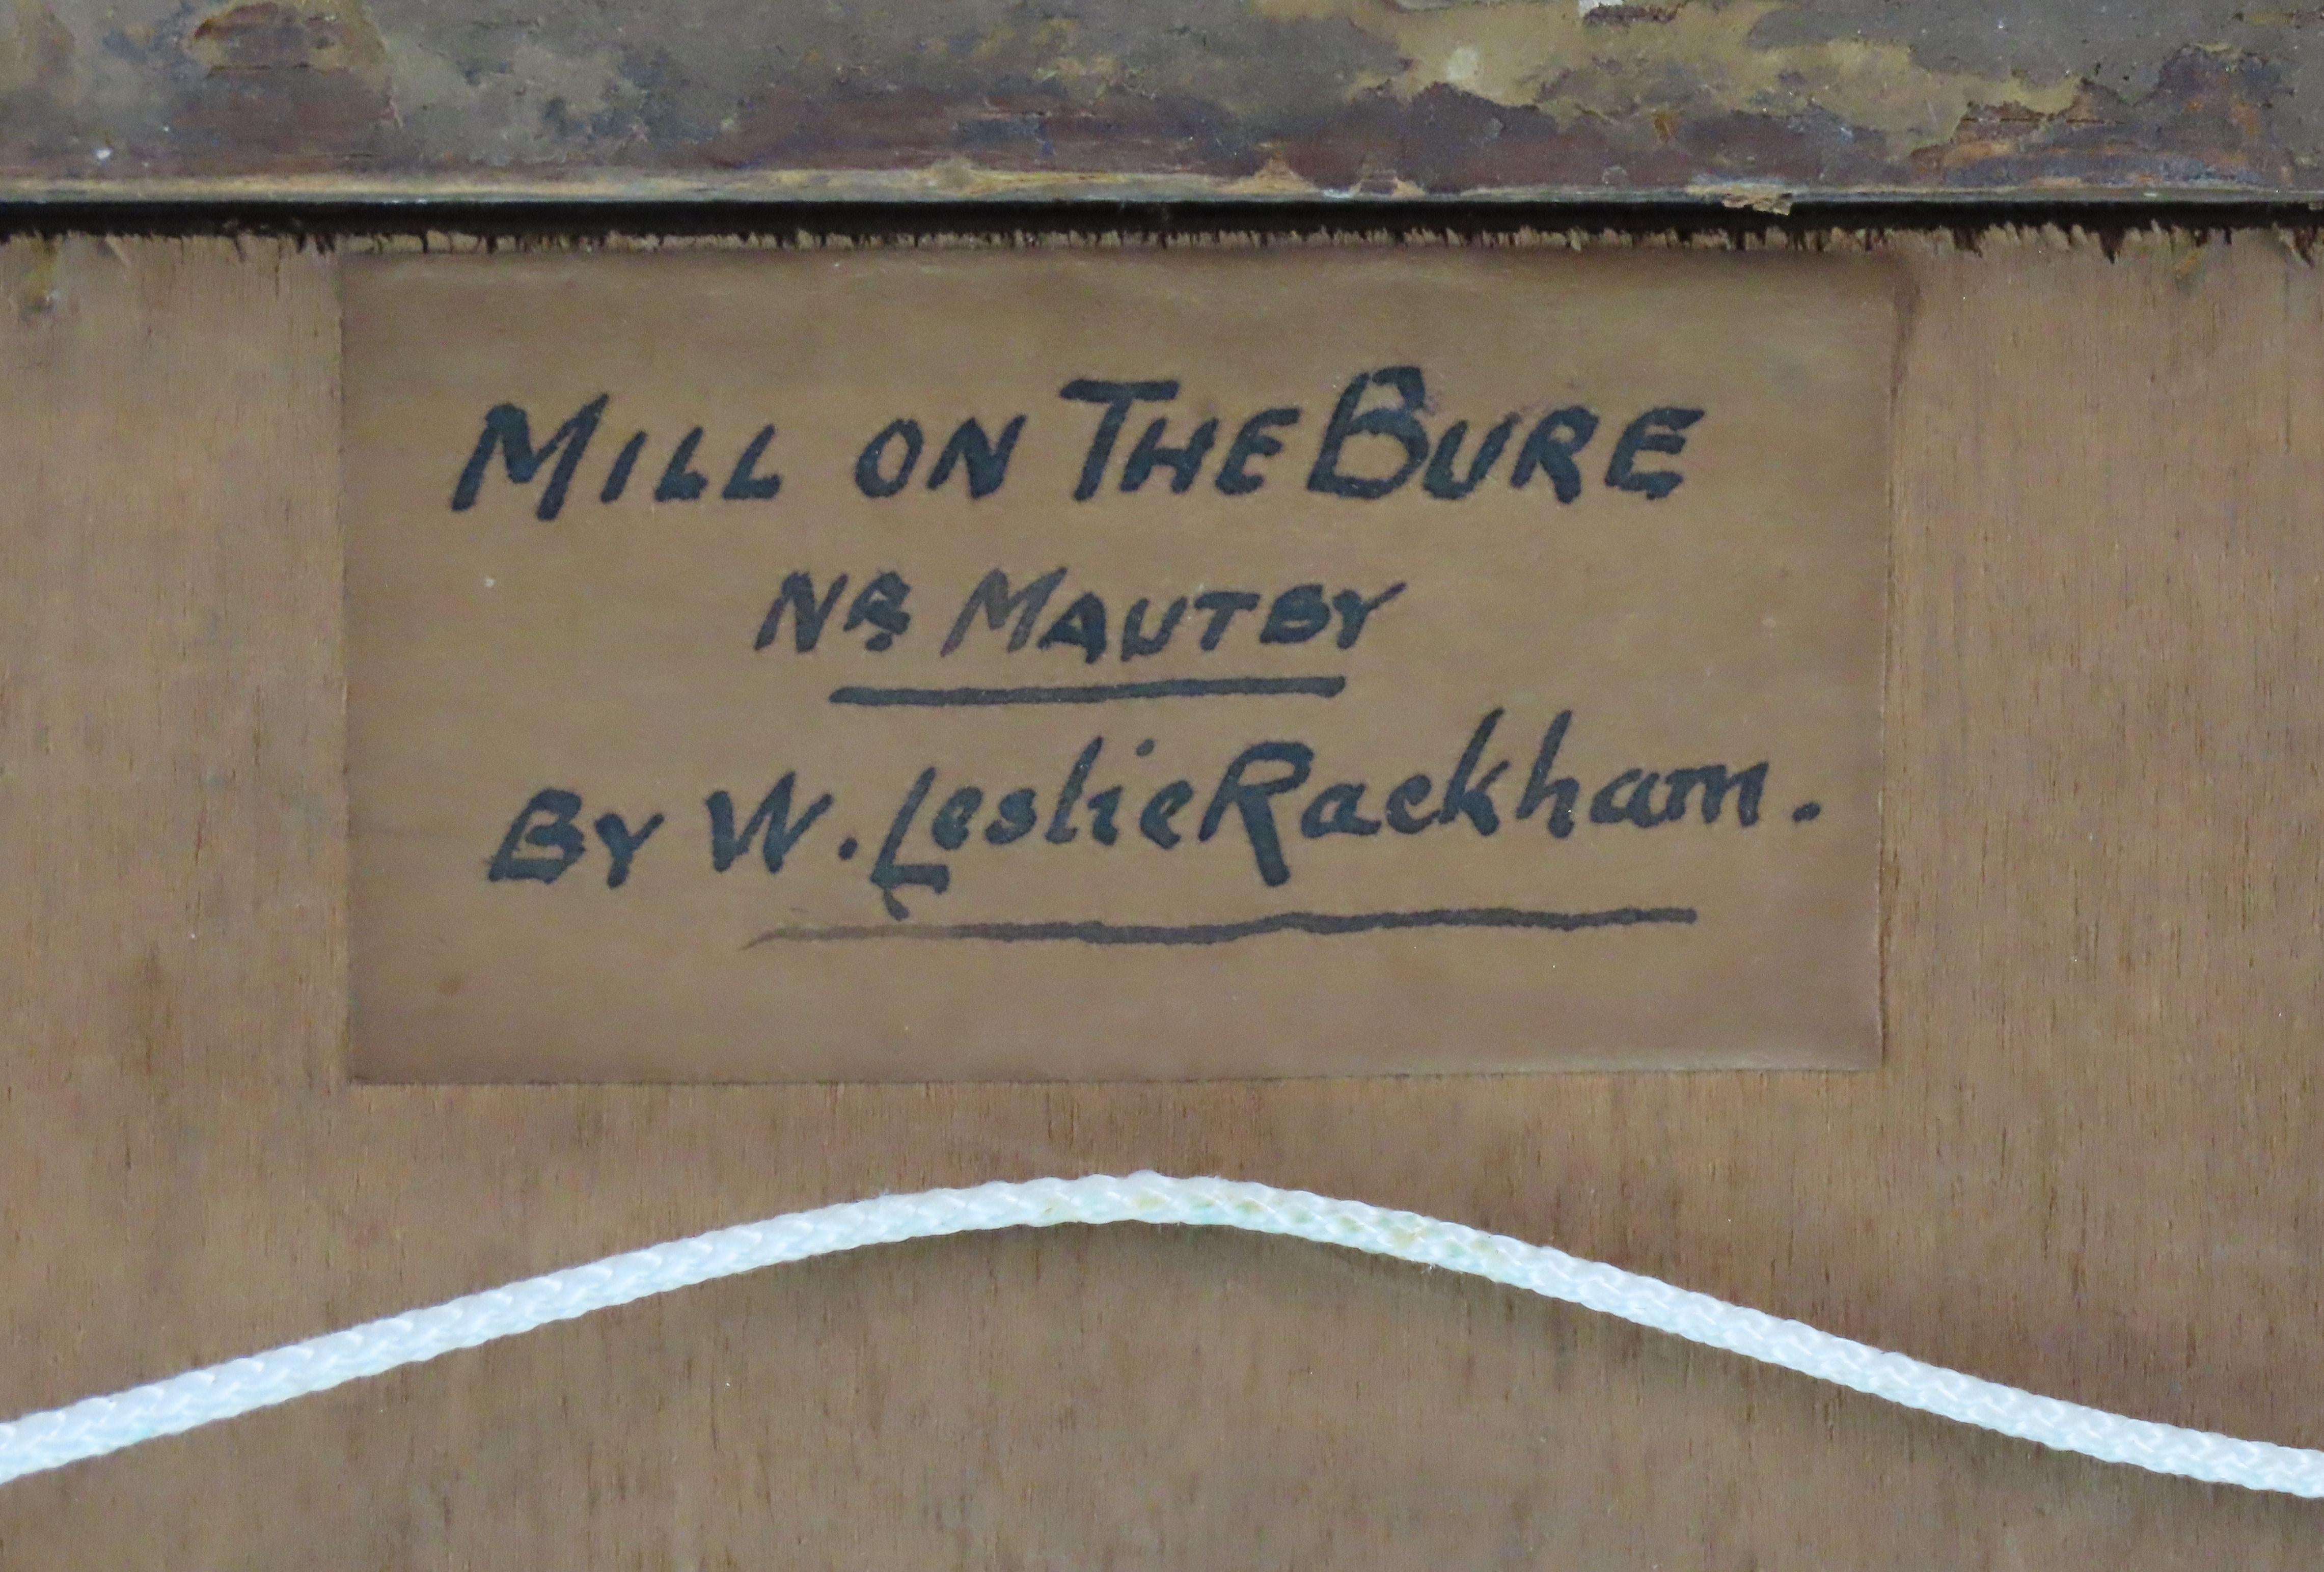 MILL ON THE BURE
NR MAUTBY
BY W. Leslie Rackham.